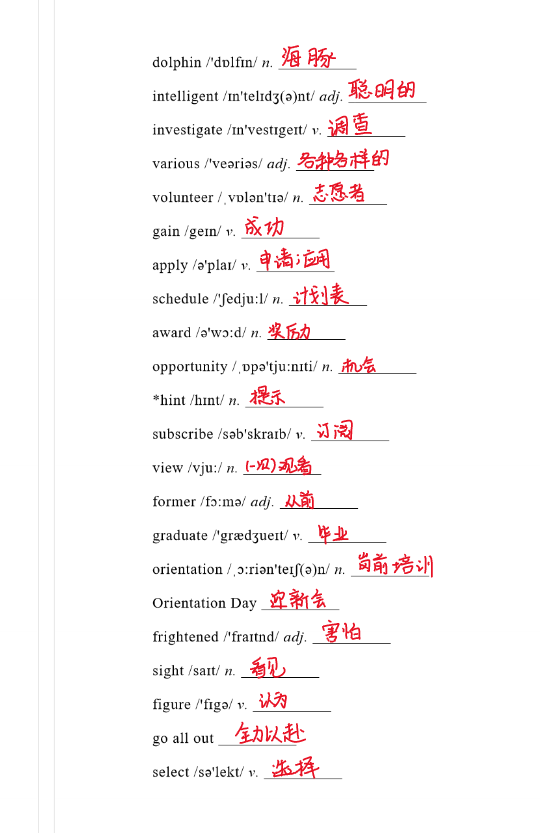 dolphin /'dɒlfɪn/ n. 海豚
intelligent /ɪn'telɪdʒ(ə)nt/ adj. 聪明的
investigate /ɪn'vestɪgeɪt/ v. 调查
various /'veəriəs/ adj. 各种各样的
volunteer /ˌvɒlən'tɪə/ n. 志愿者
gain /geɪn/ v. 成功
apply /ə'plaɪ/ v. 申请;应用
schedule /'ʃedju:l/ n. 计划表
award /ə'wɔ:d/ n. 奖历力
opportunity /ˌɒpə'tju:nɪti/ n. 机会
*hint /hɪnt/ n. 提示
subscribe /səb'skraɪb/ v. 订阅
view /vju:/ n. (一次)观看
former /fɔ:mə/ adj. 从前
graduate /'grædʒueɪt/ v. 毕业
orientation /ˌɔ:riən'teɪʃ(ə)n/ n. 岗前培训
Orientation Day 迎新会
frightened /'fraɪtnd/ adj. 害怕
sight /saɪt/ n. 看见
figure /'fɪgə/ v. 认为
go all out 全力以赴
select /sə'lekt/ v. 选择